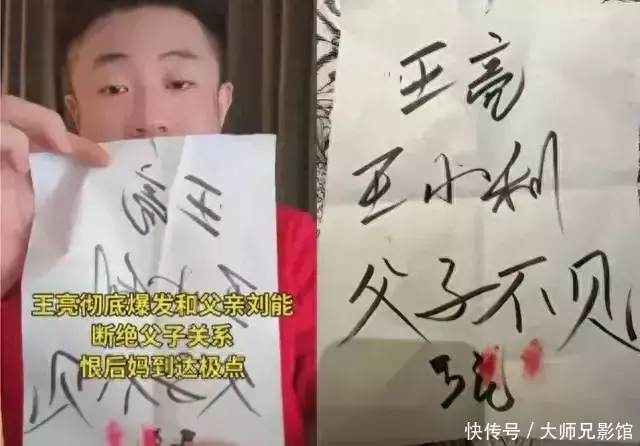 王亮彻底爆发和父亲刘能
断绝父子关系
恨后妈到达极点
王亮
王小利
父子不见
快传号／大师兄影馆